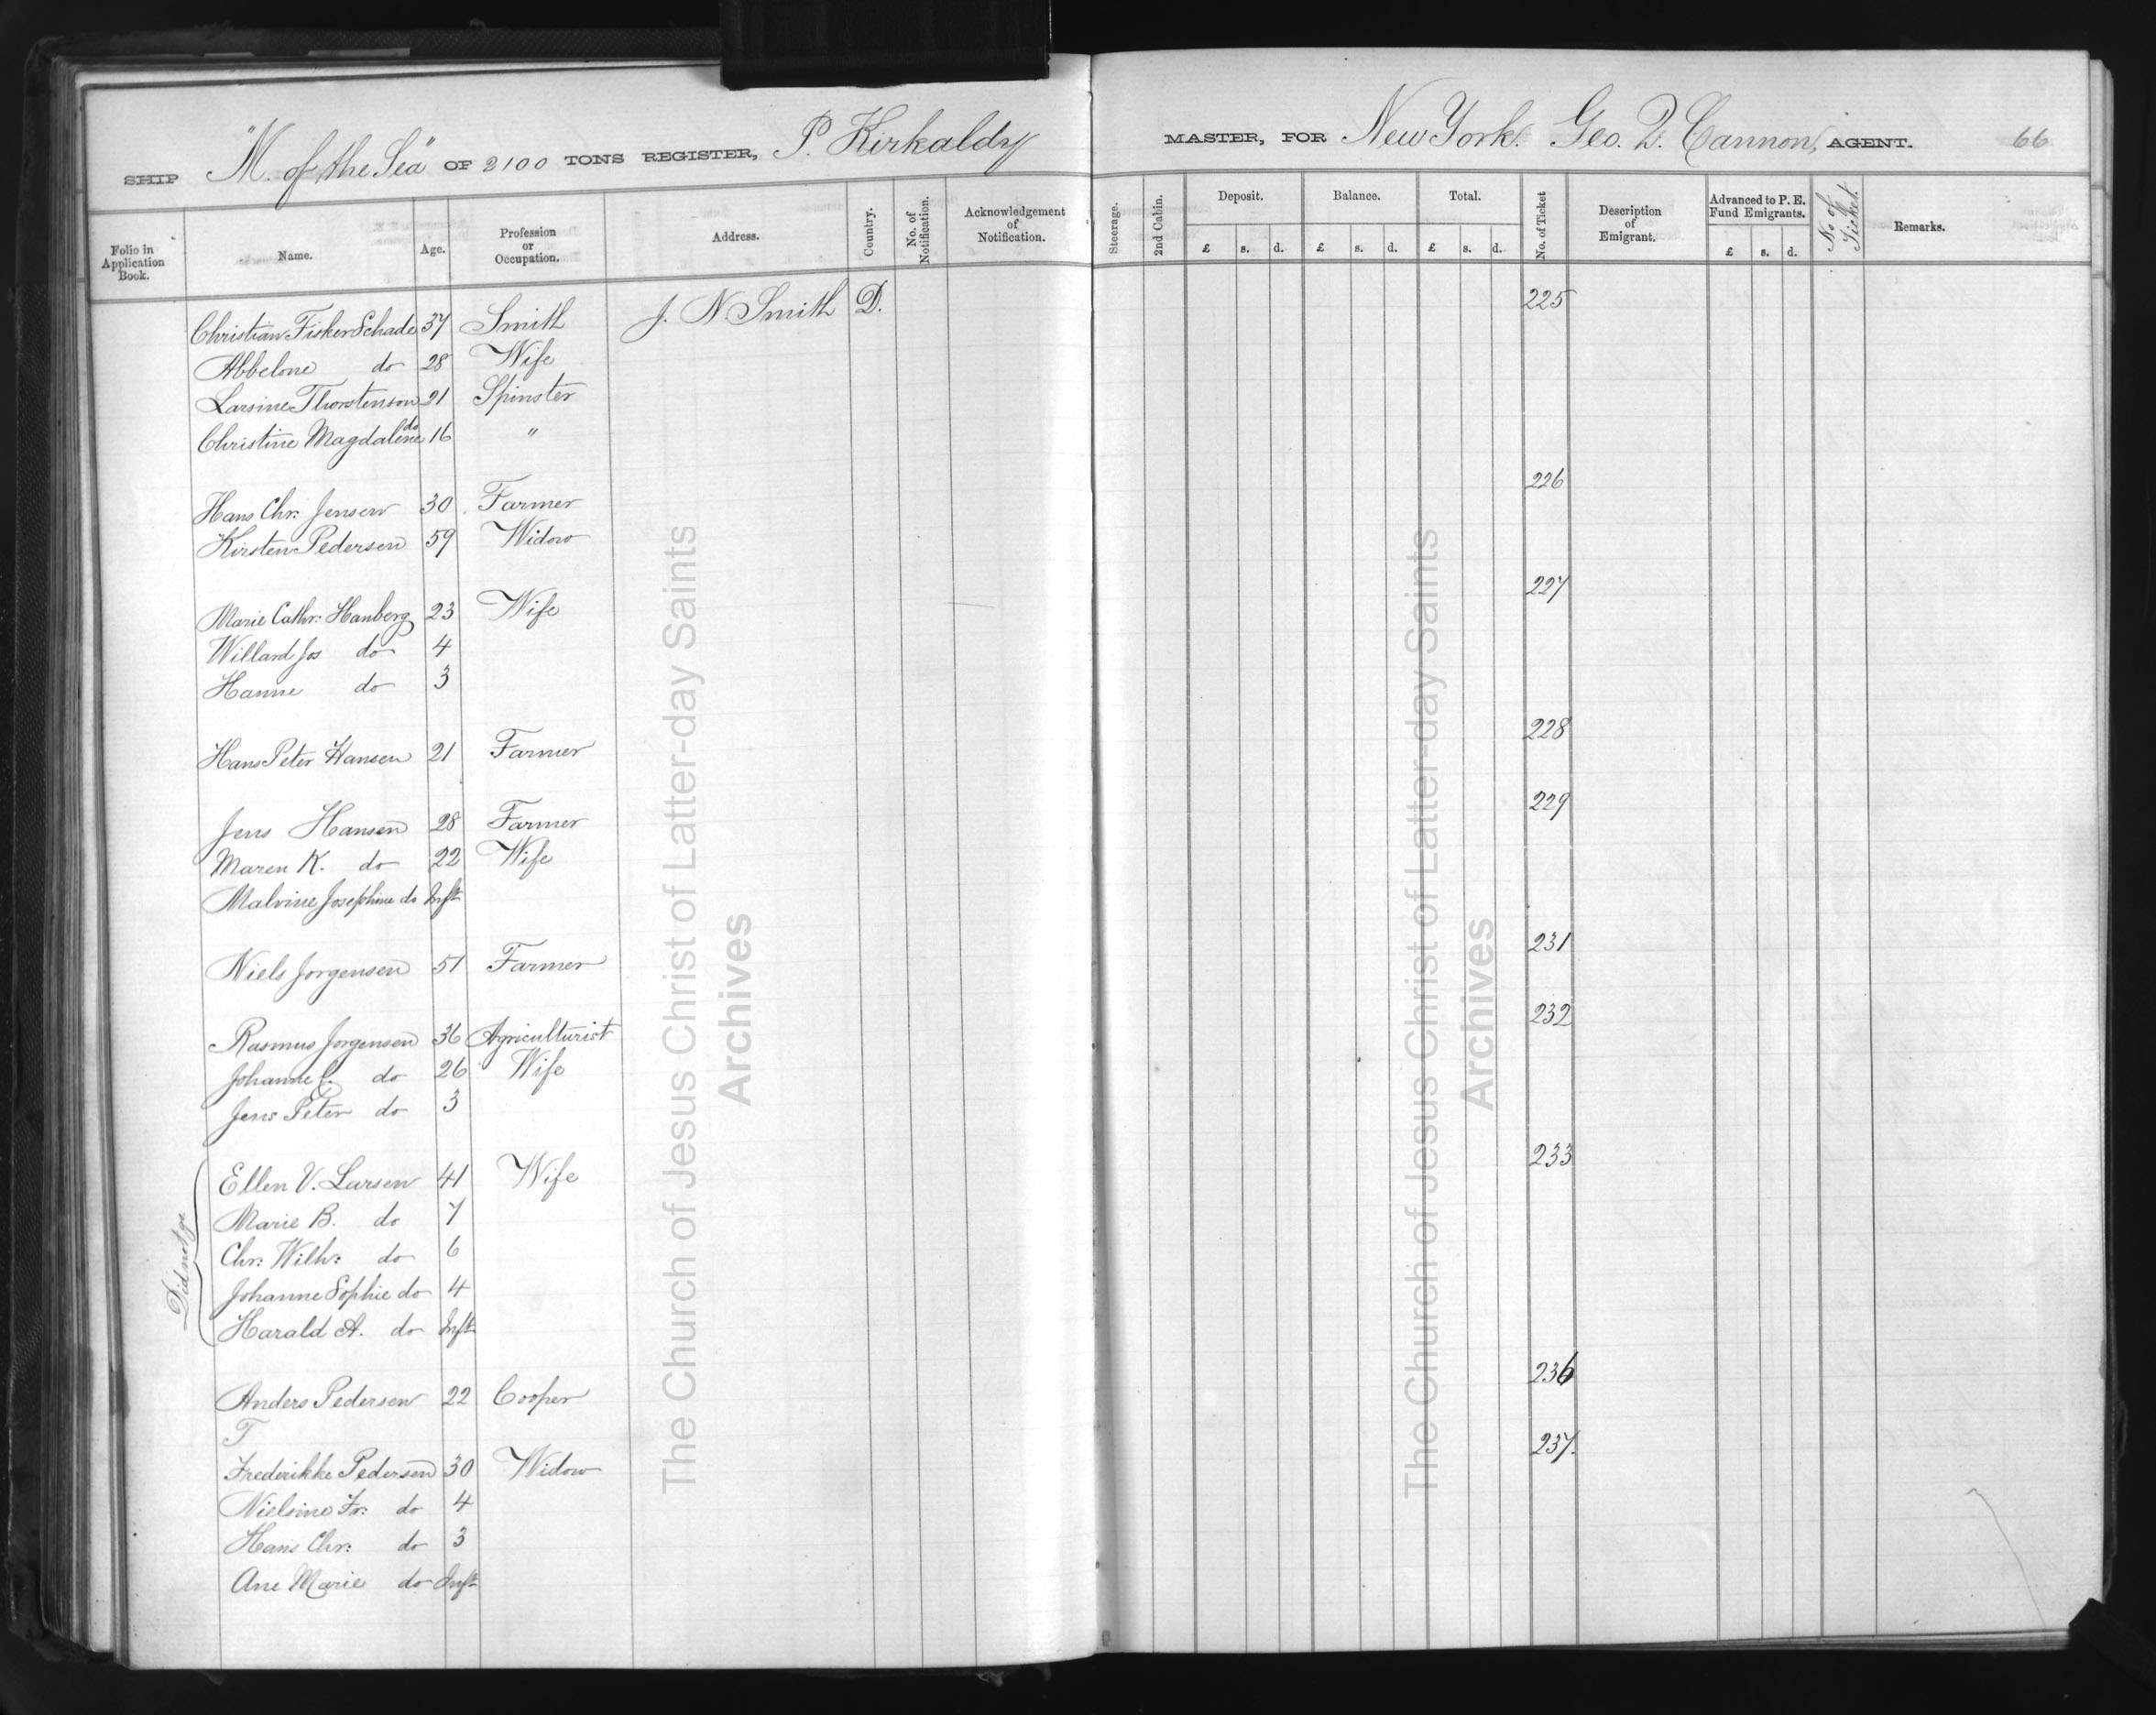 SHIP "M. of the Sea" OF 2100 TONS REGISTER, P. Kirkaldy MASTER, FOR New York. Geo. Q. Cannon, AGENT. 66
Folio in Application Book. Name. Age. Profession or Occupation. Address. Country. No. of Notification. Acknowledgement of Notification. Steerage. 2nd Cabin. Deposit. Balance. Total. No. of Ticket Description of Emigrant. Advanced to P. E. Fund Emigrants. No of Ticket. Remarks.
£ s. d. £ s. d. £ s. d. £ s. d.
Christian Fisker Schade 37 Smith J. N Smith D. 225
Abbelone do 28 Wife
Larsine Thorstenson 21 Spinster
Christine Magdalene do 16 "
Hans Chr. Jensen 30 Farmer 226
Kirsten Pedersen 59 Widow
Marie Cathr: Hanberg 23 Wife 227
Willard Jos do 4
Hanne do 3
Hans Peter Hansen 21 Farmer 228
Jens Hansen 28 Farmer 229
Maren K. do 22 Wife
Malvine Josephine do Inft
Niels Jorgensen 51 Farmer 231
Rasmus Jorgensen 36 Agriculturist 232
Johanne C. do 26 Wife
Jens Peter do 3
Did not go
Ellen V. Larsen 41 Wife 233
Marie B. do 7
Chr: Wilh: do 6
Johanne Sophie do 4
Harald A. do Inft
Anders Pedersen 22 Cooper 236
F
Frederikke Pedersen 30 Widow 237.
Nielsine Fr: do 4
Hans Chr: do 3
Ane Marie do Inft
The Church of Jesus Christ of Latter-day Saints
Archives
The Church of Jesus Christ of Latter-day Saints
Archives